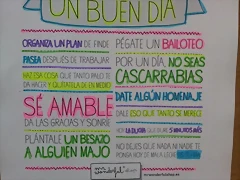 UN BUEN DÍA
ORGANIZA UN PLAN DE FINDE
PASEA DESPUÉS DE TRABAJAR
HAZ ESA COSA QUE TANTO PALO TE
DA HACER Y QUÍTATELA DE EN MEDIO
SÉ AMABLE
DA LAS GRACIAS Y SONRÍE
PLÁNTALE UN BESAZO
A ALGUIEN MAJO
PÉGATE UN BAILOTEO
POR UN DÍA, NO SEAS
CASCARRABIAS
DATE ALGÚN HOMENAJE
DALE ESO QUE TANTO SE MERECE
5 MINUTOS MÁS
NO DEJES QUE NADA NI NADIE TE
PONGA HOY DE MALA LECHE